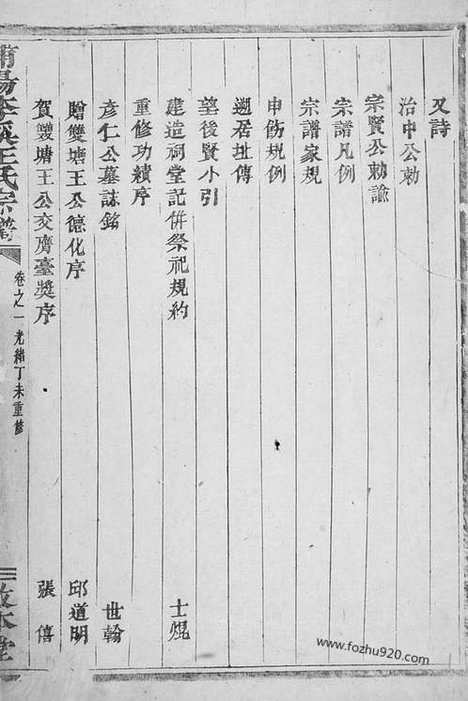 又詩
治中公勅
宗賢公勅諭
宗譜凡例
宗譜家規
申飭規例
遡居址傳
望後賢小引
建造祠堂記併祭祀規約 士焜
重修功績序
彥仁公墓誌銘 世翰
贈雙塘王公德化序 邱道明
賀雙塘王公交膺臺奬序 張僖
王氏宗譜
卷之一光緒丁未重修
敦本堂
www.fozhu920.com